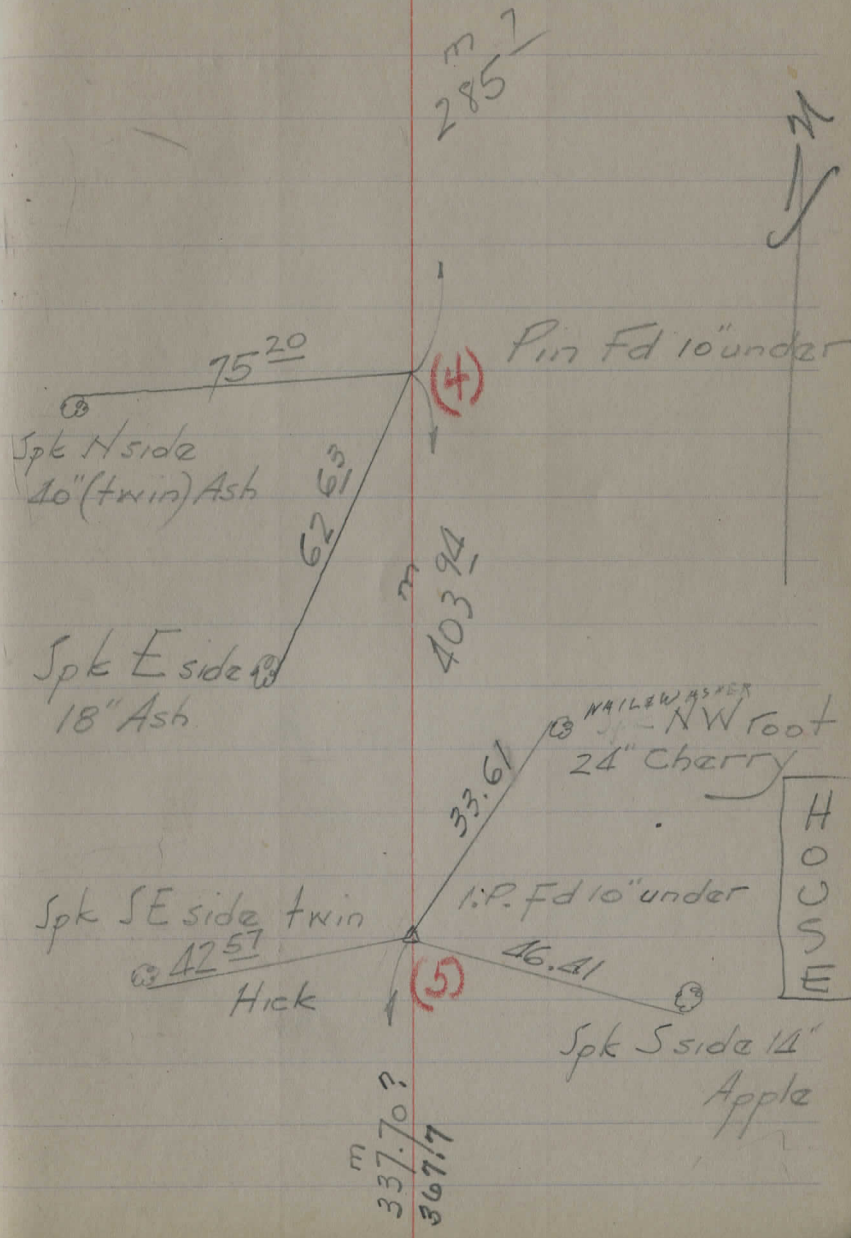 m
285 7
N
75 20
(4)
Pin Fd 10" under
Spk N side
40" (twin) Ash
62 63
m
403 94
Spk E side
18" Ash
NAIL & WASHER
NW root
24" Cherry
33.61
HOUSE
Spk SE side twin
42 57
Hick
I.P. Fd 10" under
(5)
46.41
Spk S side 14"
Apple
m
337.70?
367.17